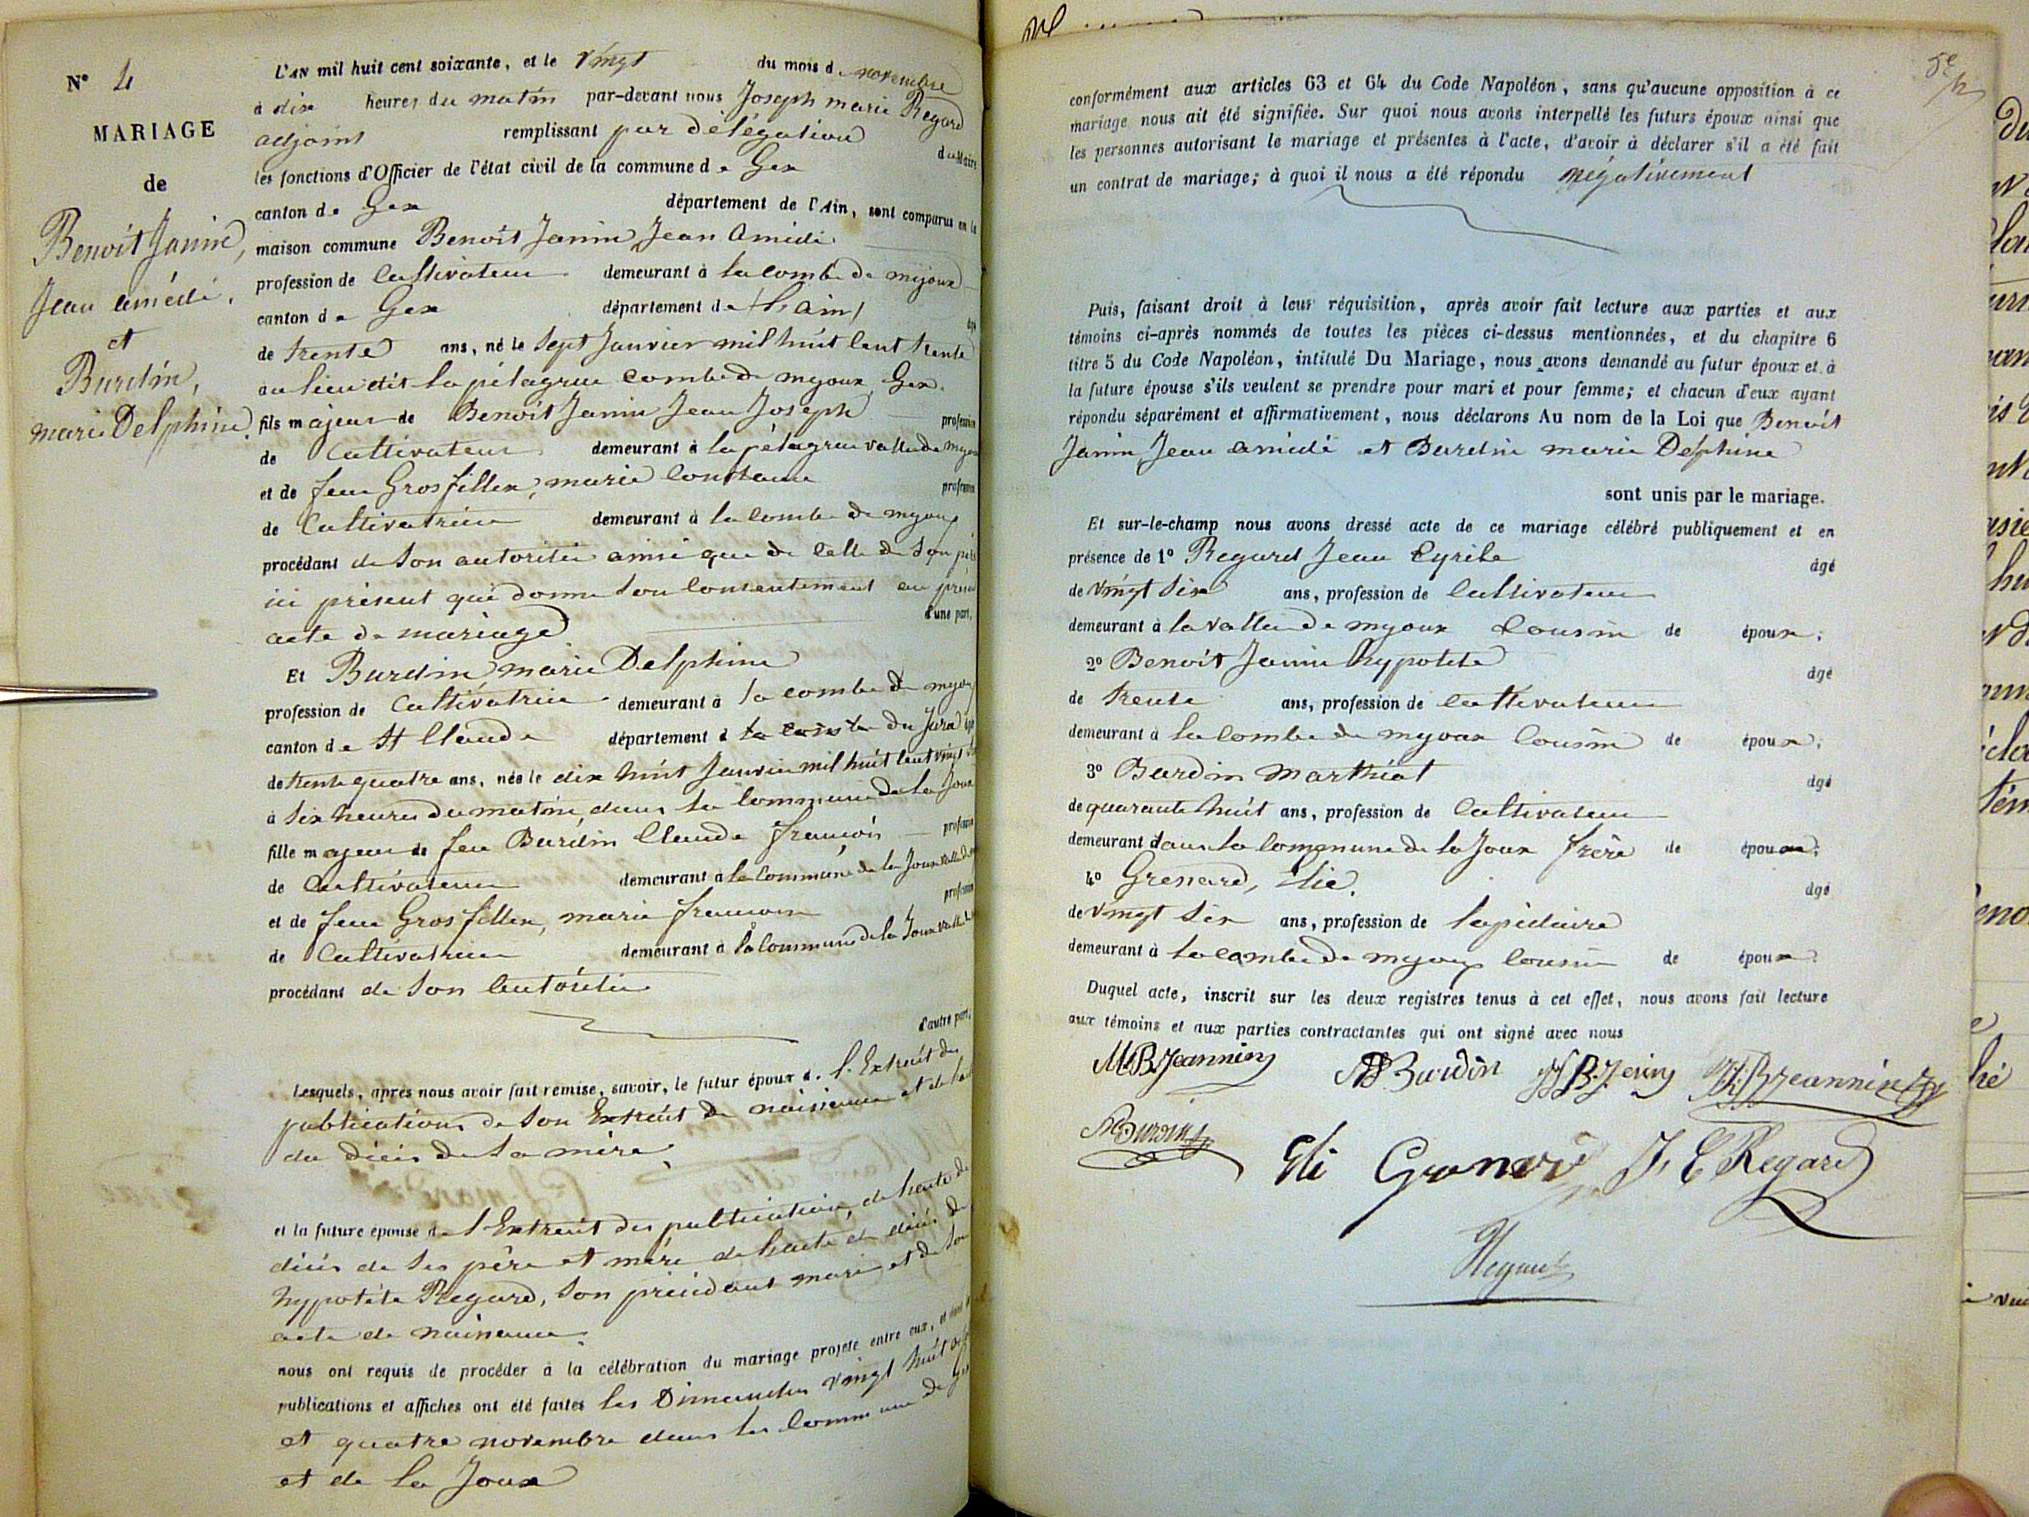 N° 4
MARIAGE
de
Benoit Janin,
Jean amédé.
et
Burdin,
marie Delphine.
L'AN mil huit cent soixante, et le vingt du mois de novembre
à dix heures du matin par-devant nous Joseph marie Regard
adjoint remplissant par délégation du Maire
les fonctions d'Officier de l'état civil de la commune de Gex
canton de Gex département de l'Ain, sont comparus en la
maison commune Benoit Janin Jean Amédé
profession de cultivateur demeurant à la combe de mijoux
canton de Gex département de l'ain
âgé
de trente ans, né le sept Janvier mil huit cent trente
au lieu dit la pélagrue combe de myoux, Gex.
fils majeur de Benoit Janin Jean Joseph profession
de Cultivateur demeurant à la pélagrue vallée de myoux
et de feue Grosfillex, marie Constance profession
de Cultivatrice demeurant à la combe de myoux
procédant de son autorité ainsi que de celle de son père
ici présent qui donne son consentement au présent
acte de mariage d'une part,
Et Burdin marie Delphine
profession de Cultivatrice demeurant à la combe de myoux
canton de St Claude département du Jura âgé
de trente quatre ans, née le dix huit Janvier mil huit cent vingt
à six heures du matin, dans la commune de la Joux
fille majeure de feu Burdin Claude françois profession
de Cultivateur demeurant à la commune de la Joux
et de feue Gros fillex, marie françoise profession
de Cultivatrice demeurant à la commune de la Joux
procédant de son autorité
d'autre part;
Lesquels, après nous avoir fait remise, savoir, le futur époux de l'Extrait des
publications de son Extrait de naissance et de
du décès de sa mère
et la future épouse de l'Extrait des publications, de l'acte de
décès de ses père et mère de l'acte de décès de
hypolite Regard, son précédant mari et de son
acte de naissance.
nous ont requis de procéder à la célébration du mariage projeté entre eux, et dont les
publications et affiches ont été faites les Dimanches vingt huit
et quatre novembre dans les communes de Gex
et de la Joux
conformément aux articles 63 et 64 du Code Napoléon, sans qu'aucune opposition à ce
mariage nous ait été signifiée. Sur quoi nous avons interpellé les futurs époux ainsi que
les personnes autorisant le mariage et présentes à l'acte, d'avoir à déclarer s'il a été fait
un contrat de mariage; à quoi il nous a été répondu négativement
Puis, faisant droit à leur réquisition, après avoir fait lecture aux parties et aux
témoins ci-après nommés de toutes les pièces ci-dessus mentionnées, et du chapitre 6
titre 5 du Code Napoléon, intitulé Du Mariage, nous avons demandé au futur époux et à
la future épouse s'ils veulent se prendre pour mari et pour femme; et chacun d'eux ayant
répondu séparément et affirmativement, nous déclarons Au nom de la Loi que Benoit
Janin Jean amédé et Burdin marie Delphine
sont unis par le mariage.
Et sur-le-champ nous avons dressé acte de ce mariage célébré publiquement et en
présence de 1° Regard Jean Cyrile âgé
de vingt six ans, profession de Cultivateur
demeurant à la vallée de myoux cousin de époux;
2° Benoit Janin hypolite âgé
de trente ans, profession de cultivateur
demeurant à la Combe de myoux Cousin de époux;
3° Burdin Marthiat âgé
de quarante huit ans, profession de Cultivateur
demeurant dans la commune de la Joux frère de épouse;
4° Grenard, élie. âgé
de vingt six ans, profession de lapidaire
demeurant à la combe de myoux cousin de époux.
Duquel acte, inscrit sur les deux registres tenus à cet effet, nous avons fait lecture
aux témoins et aux parties contractantes qui ont signé avec nous
Burdin
Burdin
Eli Grenard J. C Regard
Regard